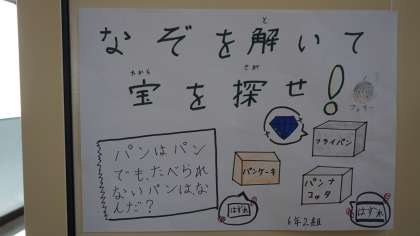 なぞを解いて
宝を探せ!
パンはパン
でも、たべられ
ないパンは、な
んだ?
フライパン
パンケーキ
パンナ
コッタ
はずれ
はずれ
6年2組